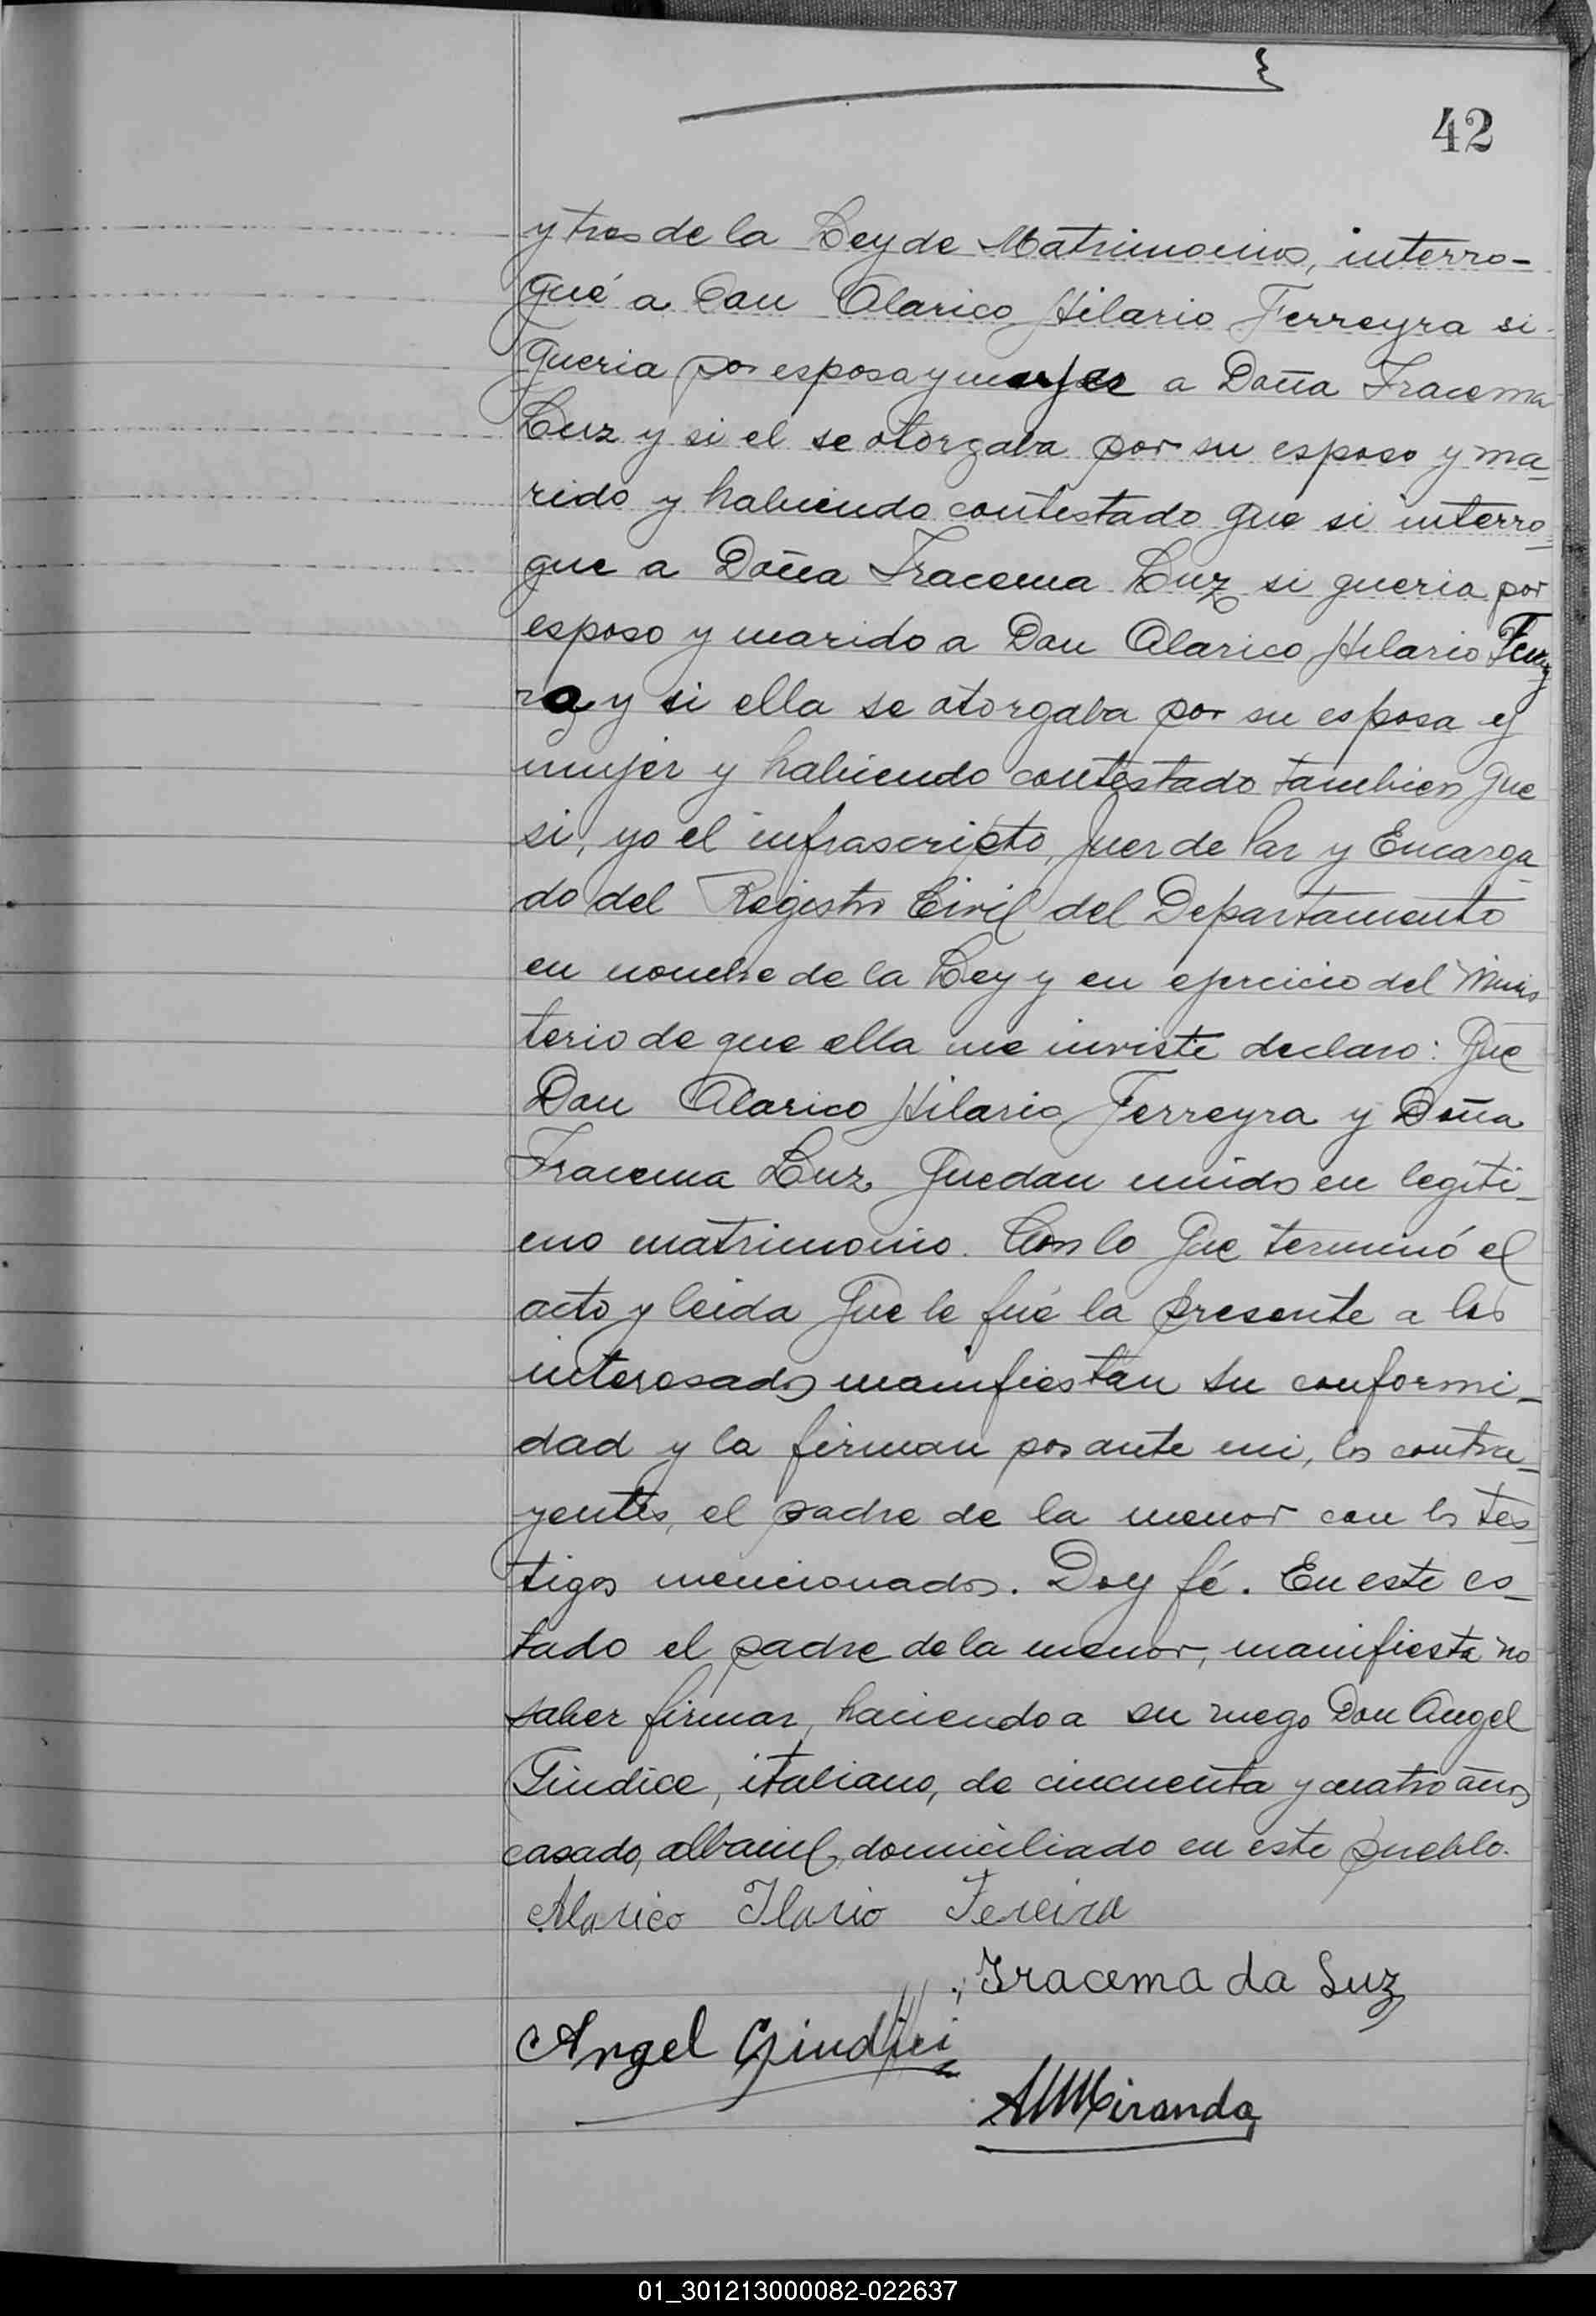 42
y tres de la Ley de Matrimonios, interro-
gué a Don Alarico Hilario Ferreyra si
queria por esposa y mujer a Doña Iracema
Luz y si el se otorgaba por su esposo y ma-
rido y habiendo contestado que si interro-
gue a Doña Iracema Luz si queria por
esposo y marido a Don Alarico Hilario Ferrey
ra y si ella se otorgaba por su esposa y
mujer y habiendo contestado tambien que
si, yo el infrascripto, Juez de Paz y Encarga-
do del Registro Civil del Departamento
en nombre de la Ley y en ejercicio del Minis
terio de que ella me inviste declaro: Que
Don Alarico Hilario Ferreyra y Doña
Iracema Luz quedan unidos en legiti-
mo matrimonio. Con lo que terminó el
acto y leida que le fué la presente a los
interesados manifiestan su conformi-
dad y la firman por ante mi, los contra-
yentes, el padre de la menor con los tes-
tigos mencionados. Doy fé. En este es-
tado el padre de la menor, manifiesta no
saber firmar, haciendo a su ruego Don Angel
Giudice, italiano, de cincuenta y cuatro años
casado, albañil, domiciliado en este pueblo.
Alarico Ilario Fereira
Iracema da Luz
Angel Giudici
AMMiranda
01_301213000082-022637